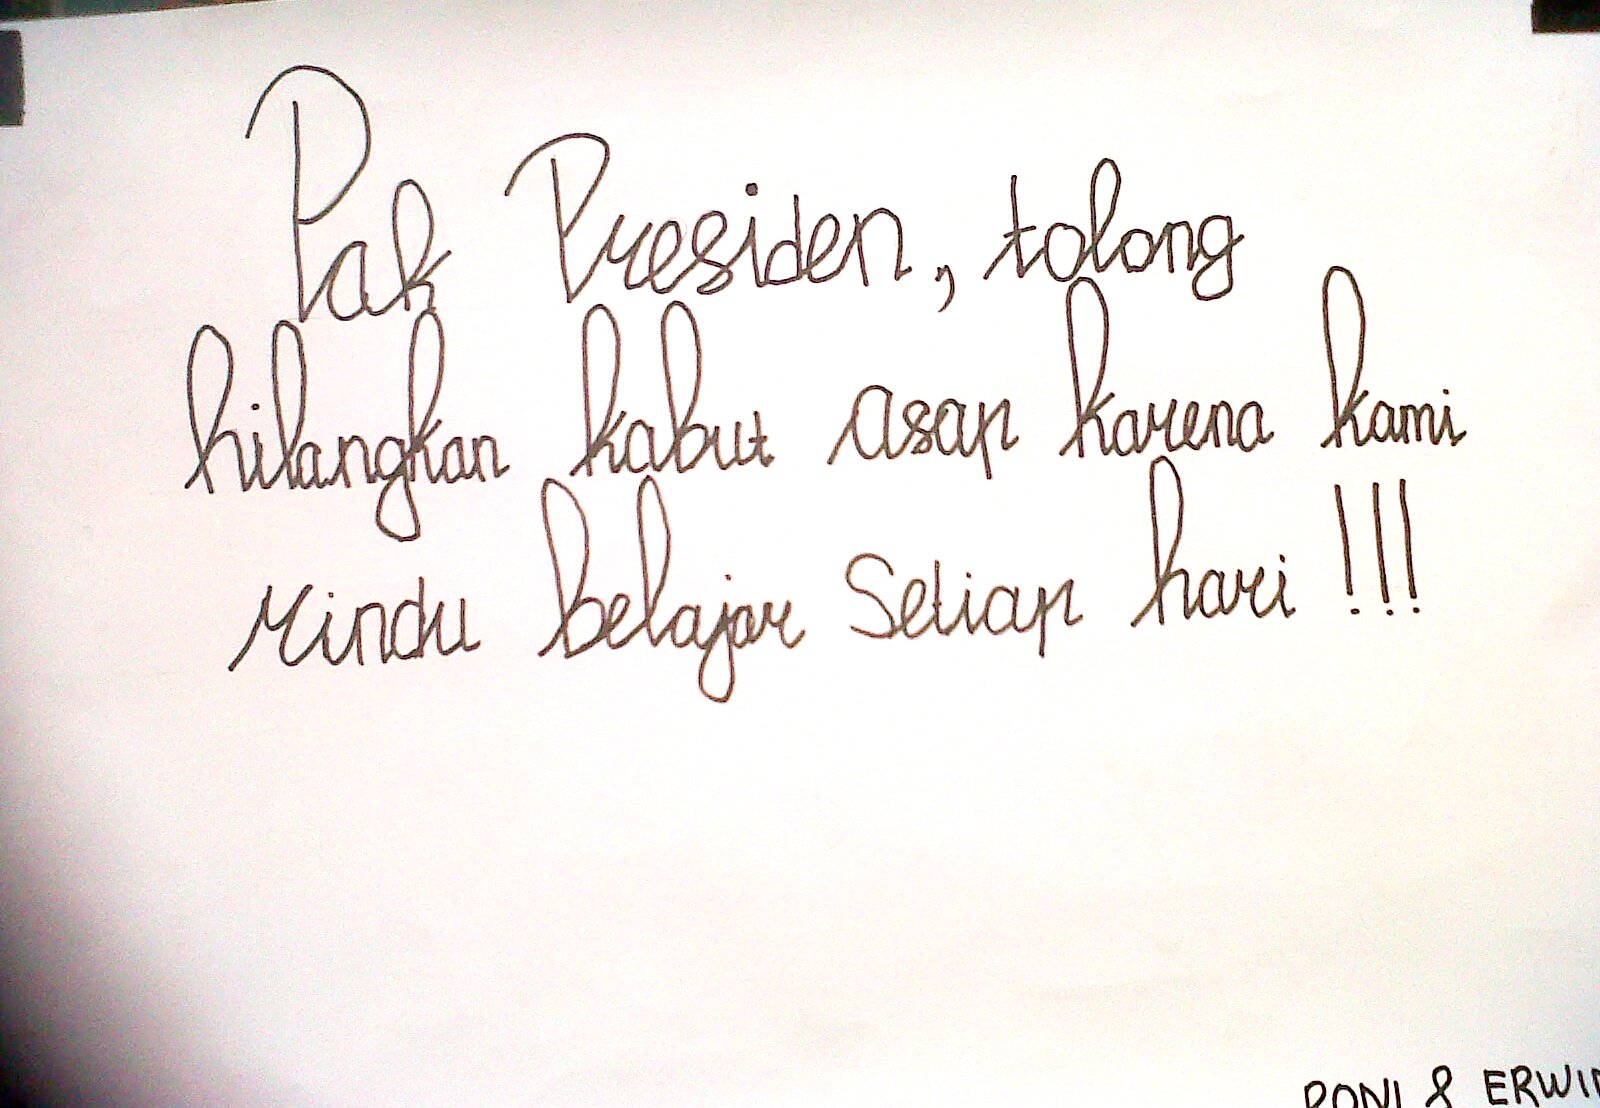 Pak Presiden, tolong
hilangkan kabut asap karena kami
rindu belajar Setiap hari !!!
RONI & ERWIN